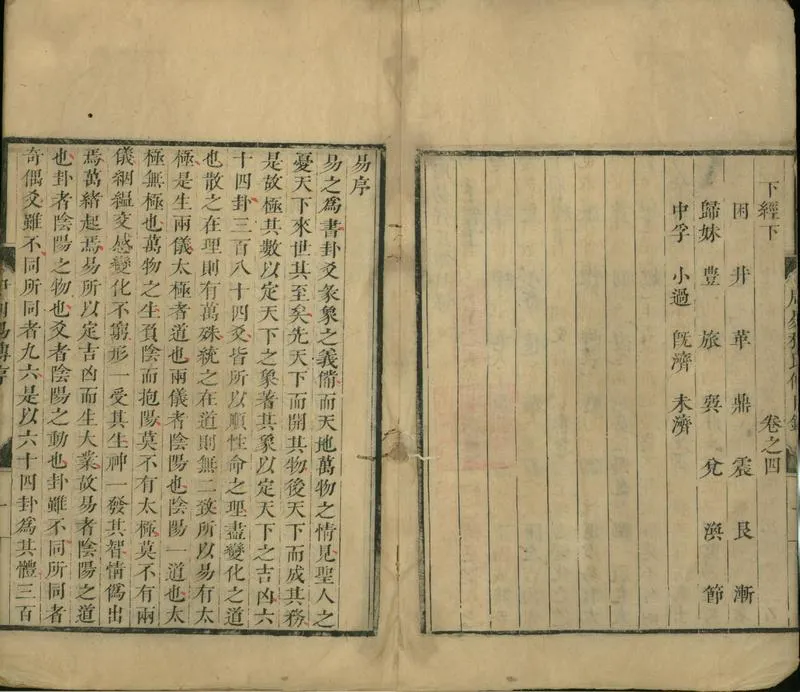 下經下 卷之四
困 井 革 鼎 震 艮 漸
歸妹 豐 旅 巽 兌 渙 節
中孚 小過 旣濟 未濟
易序
易之爲書卦爻彖象之義備而天地萬物之情見聖人之
憂天下來世其至矣先天下而開其物後天下而成其務
是故極其數以定天下之象著其象以定天下之吉凶六
十四卦三百八十四爻皆所以順性命之理盡變化之道
也散之在理則有萬殊統之在道則無二致所以易有太
極是生兩儀太極者道也兩儀者陰陽也陰陽一道也太
極無極也萬物之生負陰而抱陽莫不有太極莫不有兩
儀絪縕交感變化不窮形一受其生神一發其智情僞出
焉萬緒起焉易所以定吉凶而生大業故易者陰陽之道
也卦者陰陽之物也爻者陰陽之動也卦雖不同所同者
奇偶爻雖不同所同者九六是以六十四卦爲其體三百